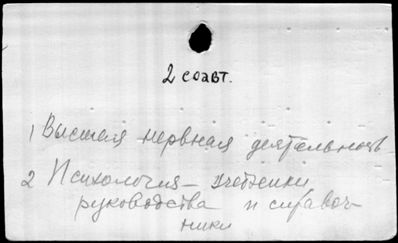 2 соавт.
1 Высшая нервная деятельность
2 Психология – учебники
руководства и справоч-
ники